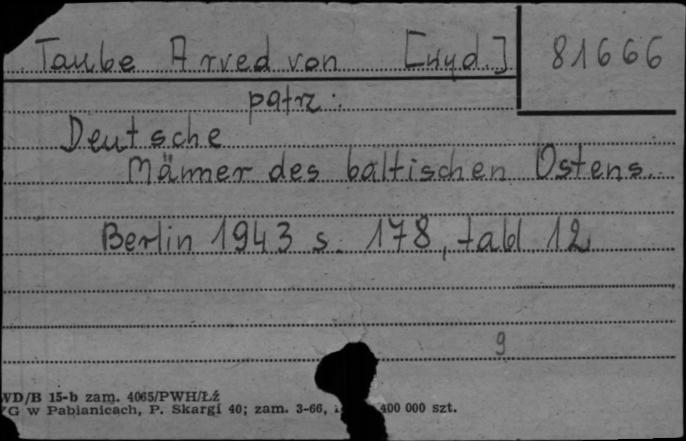 Taube Arved von [Wyd.] 81666
patrz:
Deutsche
Männer des baltischen Ostens.
Berlin 1943 s. 178, tabl 12
9
WD/B 15-b zam. 4065/PWH/Łź
ZG w Pabianicach, P. Skargi 40; zam. 3-66, 400 000 szt.